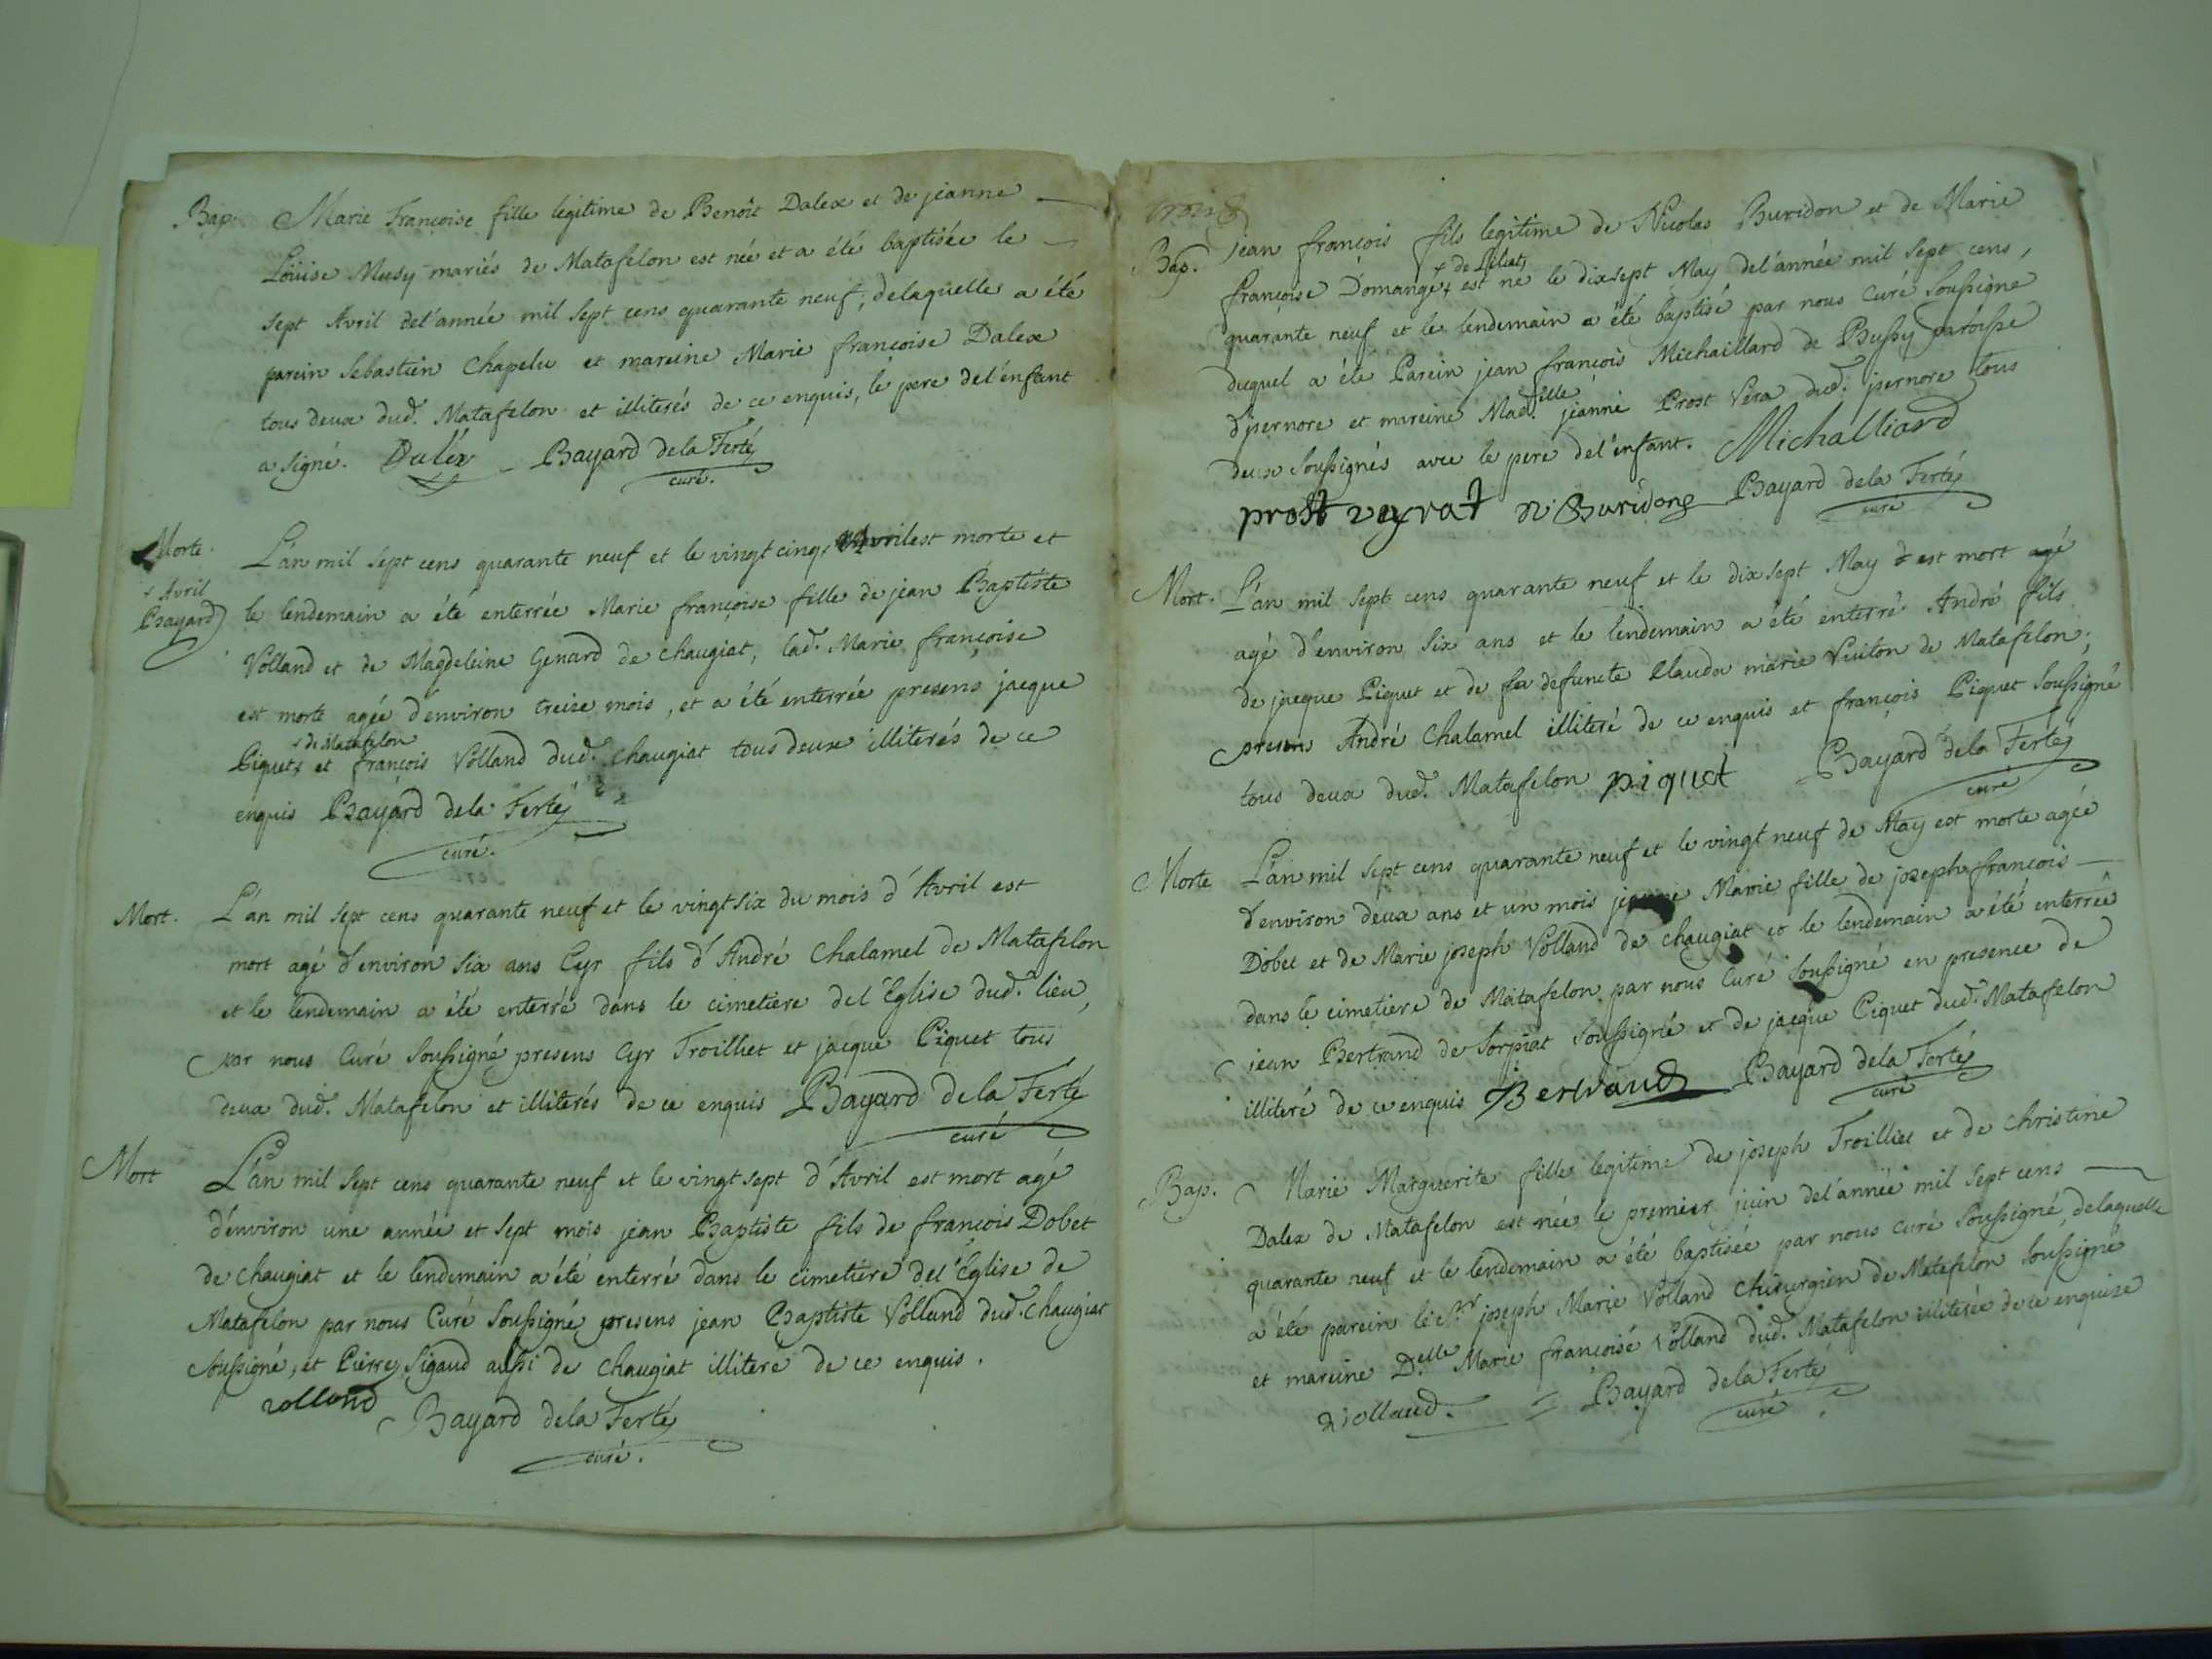 Bap. Marie Françoise fille legitime de Benoît Dalex et de jeanne
Loüise Musy mariés de Matafelon est née et a été baptisée le
sept Avril del'année mil sept cens quarante neuf, delaquelle a été
parein Sebastien Chapelu et mareine Marie françoise Dalex
tous deux dud. Matafelon et illiterés de ce enquis, le pere del'enfant
a signé. Daléx Bayard dela Ferté
curé.
Morte. L'an mil sept cens quarante neuf et le vingt cinq Avril est morte et
+ Avril
Bayard le lendemain a été enterrée Marie françoise fille de jean Baptiste
Volland et de Magdeleine Genard de chaugiat, lad. Marie françoise
est morte agée d'environ treize mois, et a été enterrée presens jacque
+ de Matafelon
Piquet+ et françois Volland dud. chaugiat tous deux illiterés de ce
enquis Bayard dela Ferté
curé.
Mort. L'an mil sept cens quarante neuf et le vingt six du mois d'Avril est
mort agé d'environ six ans Cyr fils d'André Chalamel de Matafelon
et le lendemain a été enterré dans le cimetiere del'Eglise dud. lieu,
par nous Curé soussigné presens Cyr Troilliet et jacque Piquet tous
deux dud. Matafelon et illiterés de ce enquis Bayard dela Ferté
curé
Mort L'an mil sept cens quarante neuf et le vingt sept d'Avril est mort agé
d'environ une année et sept mois jean Baptiste fils de françois Dobet
de chaugiat et le lendemain a été enterré dans le cimetiere del'Eglise de
Matafelon par nous Curé soussigné presens jean Baptiste Volland dud. chaugiat
soussigné, et Pierre Sigaud aussi de chaugiat illiteré de ce enquis.
volland Bayard dela Ferté
curé.
trois
Bap. jean françois fils legitime de Nicolas Buridon et de Marie
+ de Léliat,
françoise Domange+ est né le dixsept May del'année mil sept cens,
quarante neuf et le lendemain a été baptisé par nous Curé soussigné
duquel a été Parein jean françois Michaillard de Bussy paroisse
d'jsernore et mareine Mad.elle jeanne Prost Véra dud. jsernore tous
deux soussignés avec le pere del'enfant. Michalliard
prost veyrat N Buridong Bayard dela Ferté
curé
Mort. L'an mil sept cens quarante neuf et le dix sept May est mort agé
agé d'environ six ans et le lendemain a été enterré André fils
de jacque Piquet et de defuncte Clauda marie Vuiton de Matafelon,
presens André Chalamel illiteré de ce enquis et françois Piquet soussigné
tous deux dud. Matafelon piquet Bayard dela Ferté
curé
Morte L'an mil sept cens quarante neuf et le vingt neuf de May est morte agée
d'environ deux ans et un mois jeanne Marie fille de joseph françois
Dobet et de Marie joseph Volland de chaugiat et le lendemain a été enterrée
dans le cimetiere de Matafelon par nous Curé soussigné en presence de
jean Bertrand de Sorpiat soussigné et de jacque Piquet dud. Matafelon
illiteré de ce enquis Bertrand Bayard dela Ferté
curé
Bap. Marie Marguerite fille legitime de joseph Troilliet et de Christine
Dalex de Matafelon est née le premier juin del'année mil sept cens
quarante neuf et le lendemain a été baptisée par nous curé soussigné, delaquelle
a été parein le Sr. joseph Marie Volland Chirurgien de Matafelon soussigné
et mareine D.elle Marie françoise Volland dud. Matafelon illiterée de ce enquise
Volland. Bayard dela Ferté
curé